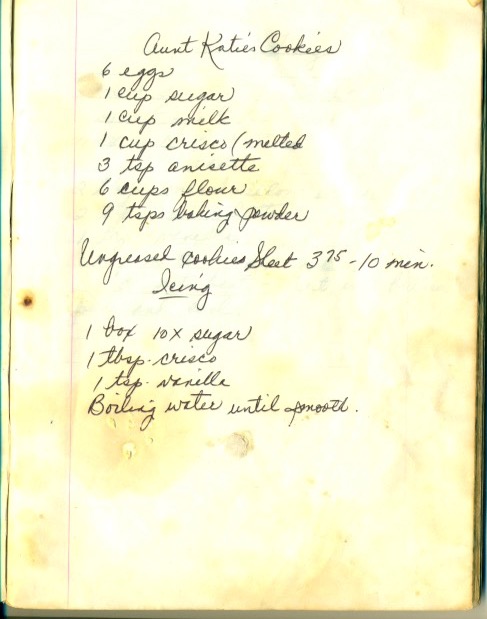 Aunt Katie's Cookies
6 eggs
1 cup sugar
1 cup milk
1 cup crisco (melted
3 tsp anisette
6 cups flour
9 tsps baking powder
Ungreased cookies Sheet 375 - 10 min.
Icing
1 box 10x sugar
1 tbsp. crisco
1 tsp. vanilla
Boiling water until smooth.